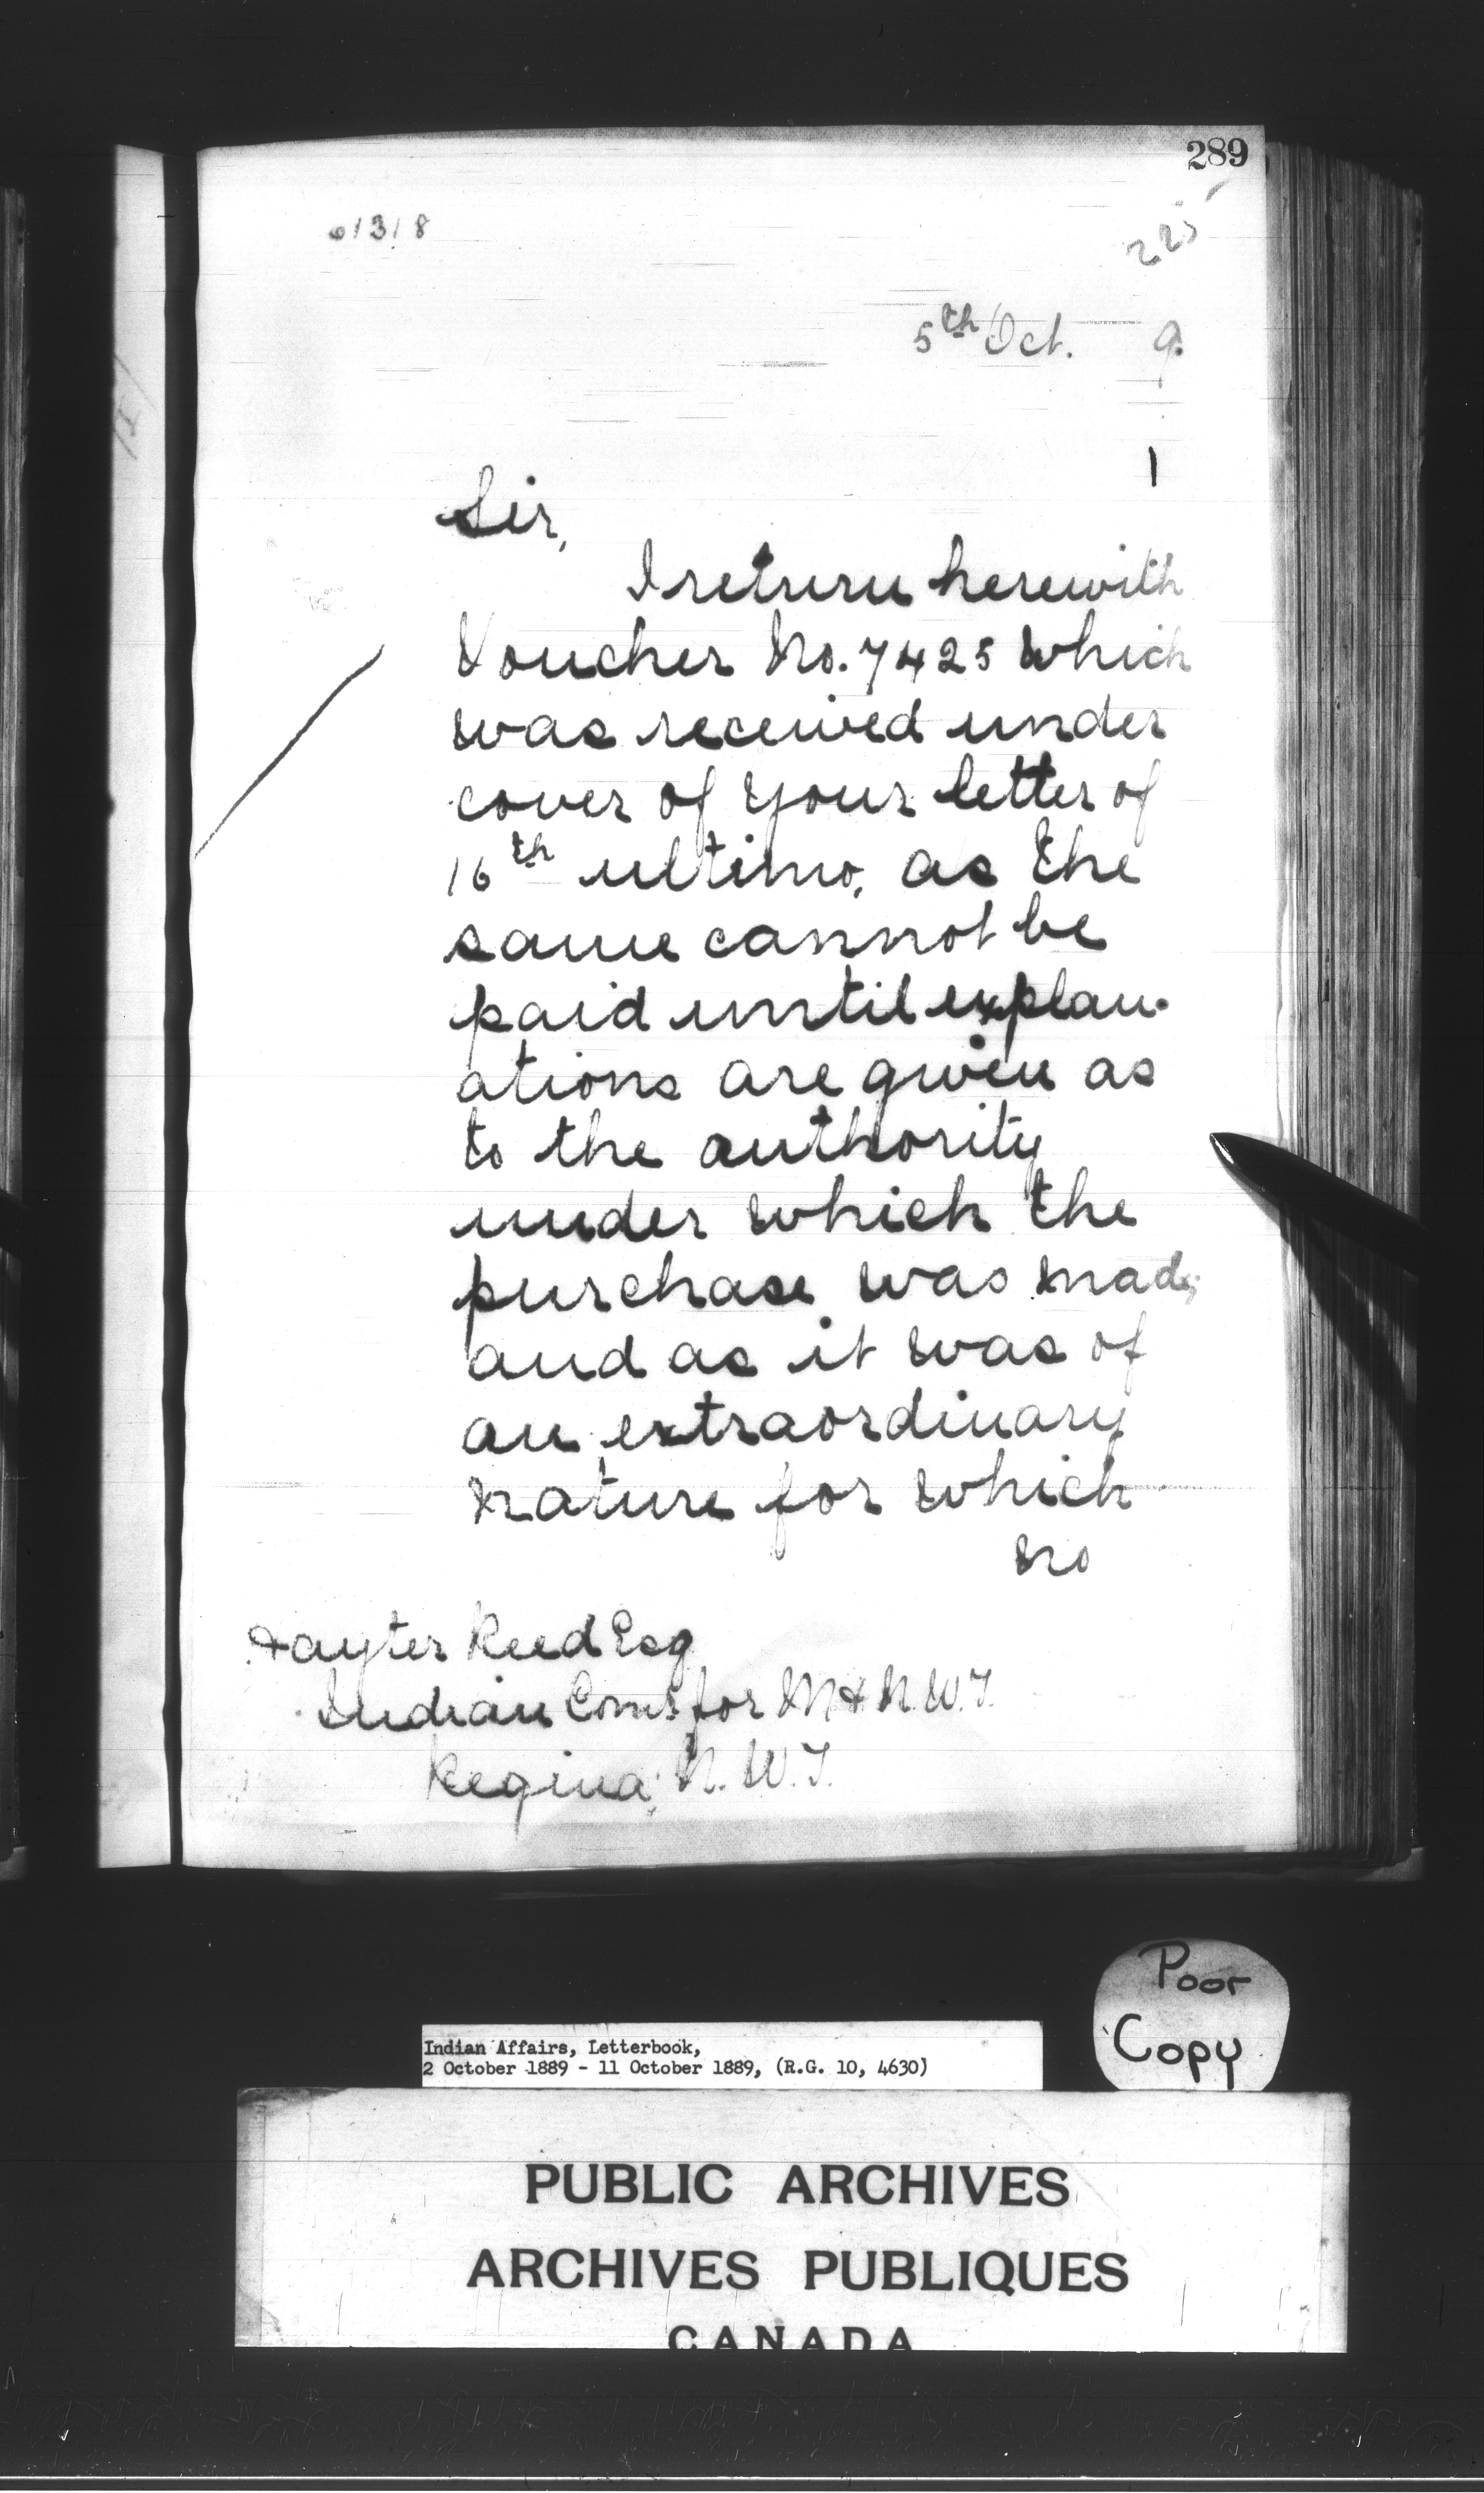 289
61318
225
5th Oct. 9.
Sir,
I return herewith
Voucher No. 7425 which
was received under
cover of your letter of
16th ultimo, as the
same cannot be
paid until explan-
ations are given as
to the authority
under which the
purchase was made,
and as it was of
an extraordinary
nature for which
no
Hayter Reed Esq
Indian Comr for M & N.W.T.
Regina, N.W.T.
Poor
Copy
Indian Affairs, Letterbook,
2 October 1889 - 11 October 1889, (R.G. 10, 4630)
PUBLIC ARCHIVES
ARCHIVES PUBLIQUES
CANADA